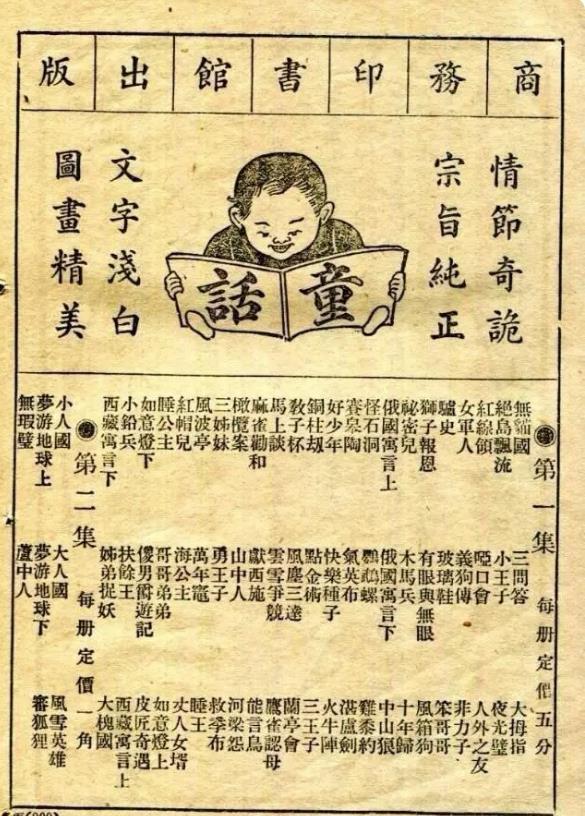 商務印書館出版
情節奇詭
宗旨純正
童話
文字淺白
圖畫精美
第一集 每册定價五分
無貓國 三問答 大拇指
絕島飄流 小王子 夜光璧
紅線領 啞口會 人外之友
女軍人 義狗傳 非力子
驢史 玻璃鞋 笨哥哥
獅子報恩 有眼與無眼 風箱狗
祕密兒 木馬兵 十年歸
俄國寓言上 俄國寓言下 中山狼
怪石洞 鸚鵡螺 雞黍約
賽皋陶 氣英布 湛盧劍
好少年 快樂種子 火牛陣
銅柱劫 點金術 三王子
敎子杯 風塵三達 蘭亭會
馬上談 雲雪爭競 鷹雀認母
麻雀勸和 獻西施 能言鳥
橄欖案 山中人 河梁怨
三姊妹 勇王子 救季布
風波亭 萬年龜 睡王
紅帽兒 海公主 丈人女壻
睡公主 哥哥弟弟 如意燈上
如意燈下 傻男爵遊記 皮匠奇遇
小鉛兵 扶餘王 西藏寓言上
西藏寓言下 姊弟捉妖 大槐國
第二集 每册定價一角
小人國 大人國 風雪英雄
夢游地球上 夢游地球下 審狐狸
無瑕璧 蘆中人